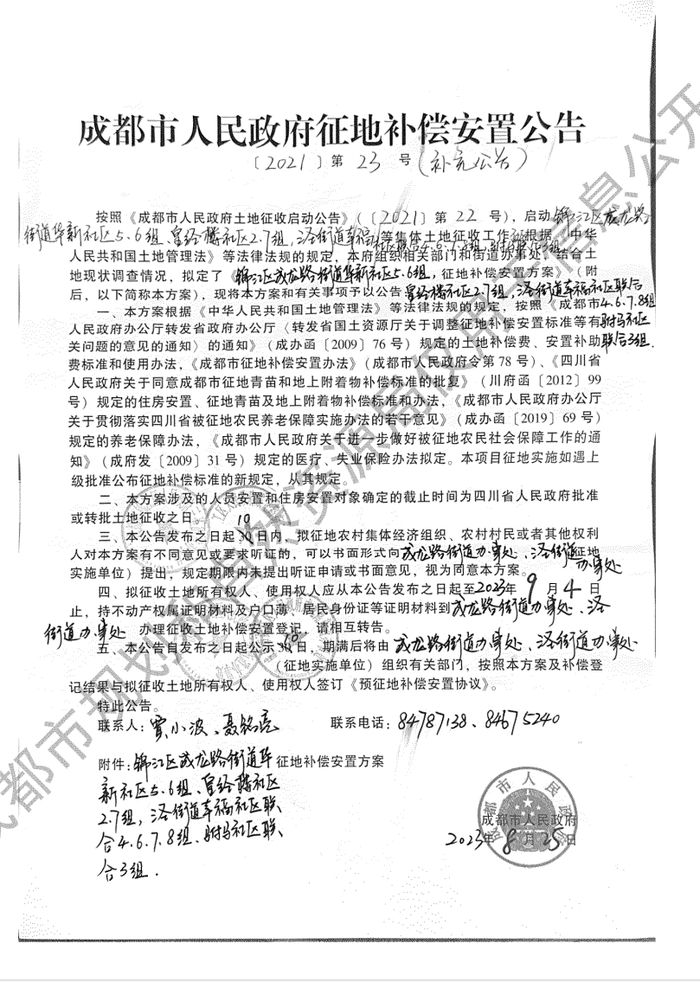 成都市人民政府征地补偿安置公告
〔2021〕第 23 号（补充公告）
按照《成都市人民政府土地征收启动公告》（〔2021〕第 22 号），启动锦江区成龙路
街道华新社区5.6组、皇经楼社区2.7组，
等集体土地征收工作。根据《中华
人民共和国土地管理法》等法律法规的规定，本府组织相关部门和街道办事处，结合土
地现状调查情况，拟定了《锦江区成龙路街道华新社区5.6组，征地补偿安置方案》（附
后，以下简称本方案），现将本方案和有关事项予以公告
皇经楼社区2.7组，
一、本方案根据《中华人民共和国土地管理法》等法律法规的规定，按照《成都市
4.6.7.8组
人民政府办公厅转发省政府办公厅〈转发省国土资源厅关于调整征地补偿安置标准等有
驸马社区
关问题的意见的通知〉的通知》（成办函［2009］76 号）规定的土地补偿费、安置补助
联合3组.
费标准和使用办法，《成都市征地补偿安置办法》（成都市人民政府令第 78 号）、《四川省
人民政府关于同意成都市征地青苗和地上附着物补偿标准的批复》（川府函［2012］99
号）规定的住房安置、征地青苗及地上附着物补偿标准和办法，《成都市人民政府办公厅
关于贯彻落实四川省被征地农民养老保障实施办法的若干意见》（成办函［2019］69 号）
规定的养老保障办法，《成都市人民政府关于进一步做好被征地农民社会保障工作的通
知》（成府发［2009］31 号）规定的医疗、失业保险办法拟定。本项目征地实施如遇上
级批准公布征地补偿标准的新规定，从其规定。
二、本方案涉及的人员安置和住房安置对象确定的截止时间为四川省人民政府批准
或转批土地征收之日。
10
三、本公告发布之日起30日内，拟征地农村集体经济组织、农村村民或者其他权利
人对本方案有不同意见或要求听证的，可以书面形式向成龙路街道办事处、
（征地
实施单位）提出，规定期限内未提出听证申请或书面意见，视为同意本方案。
四、拟征收土地所有权人、使用权人应从本公告发布之日起至2023年 9 月 4 日
止，持不动产权属证明材料及户口薄、居民身份证等证明材料到成龙路街道办事处、
街道办事处 办理征收土地补偿安置登记，请相互转告。
10
五、本公告自发布之日起公示30日，期满后将由成龙路街道办事处、
（征地实施单位）组织有关部门，按照本方案及补偿登
记结果与拟征收土地所有权人、使用权人签订《预征地补偿安置协议》。
特此公告。
联系人：贾小波、聂铭亮 联系电话：84787138、84675240
附件：锦江区成龙路街道华 征地补偿安置方案
新社区5.6组、皇经楼社区
2.7组，
合4.6.7.8组、驸马社区联
合3组.
成都市人民政府
2023年 8 月 25 日
成都市规划和自然资源局仅用于信息公开